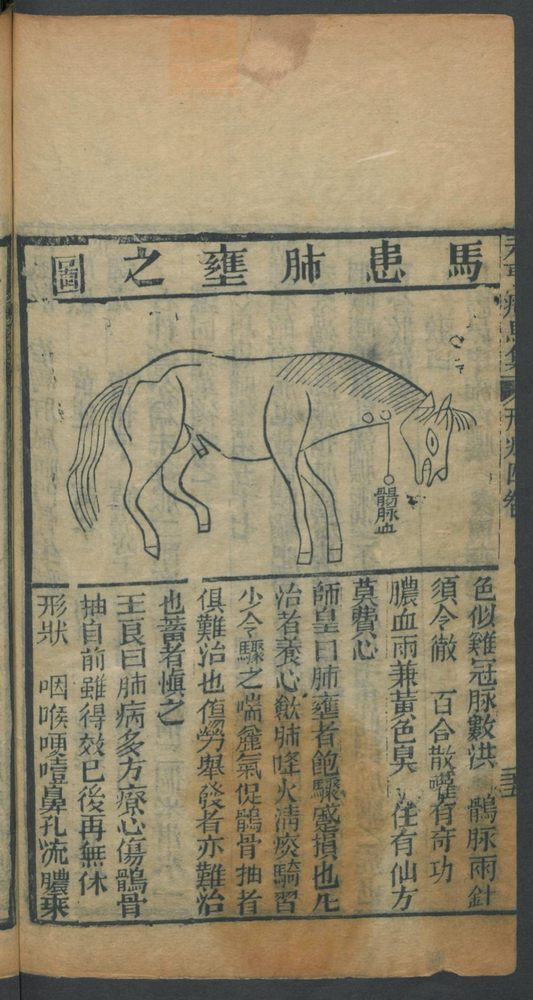 馬患肺壅之圖
鶻脉血
色似雞冠脉數洪 鶻脉兩針
須令徹 百合散嚾有奇功
膿血兩兼黃色臭 任有仙方
莫費心
師皇曰肺壅者飽驟蹙損也凡
治者養心歛肺降火清痰騎習
少令驟之喘麄氣促鶻骨抽者
俱難治也值勞舉發者亦難治
也蓄者慎之
王良曰肺病多方療心傷鶻骨
抽自前雖得效已後再無休
形狀 咽喉哽噎鼻孔流膿束
療馬集
四卷